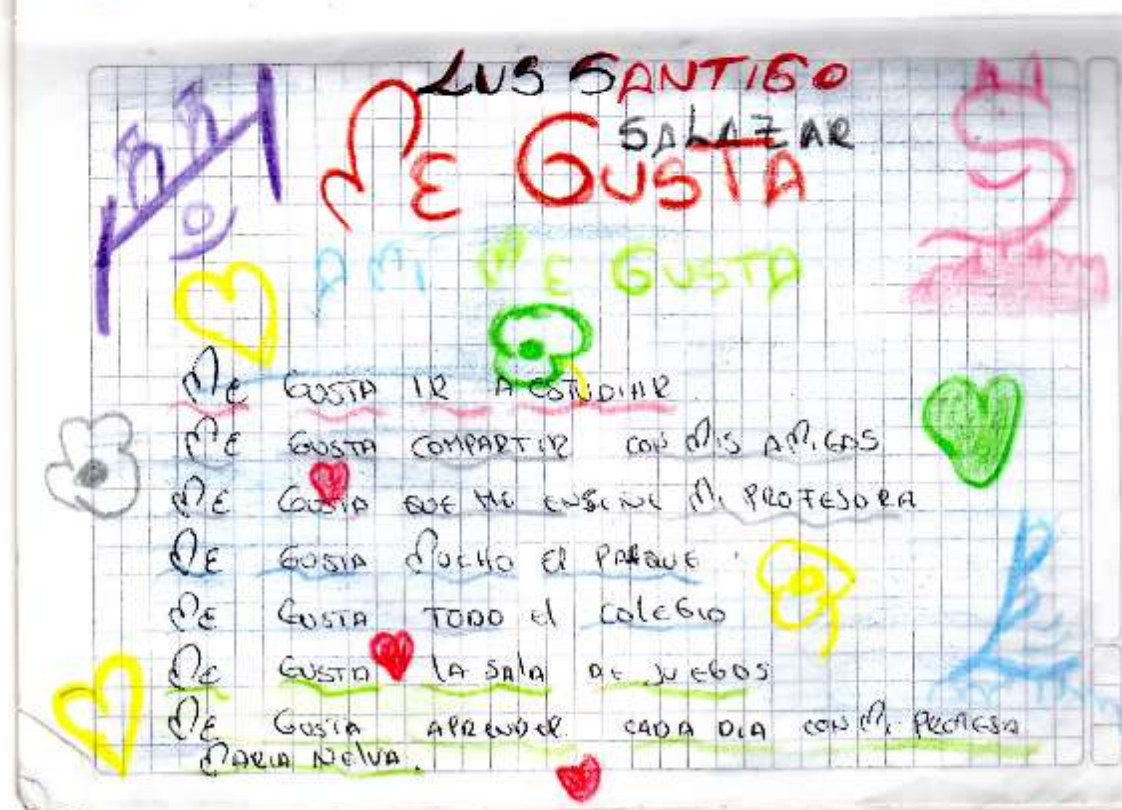 LUS SANTIGO
SALAZAR
ME GUSTA
A MI ME GUSTA
ME GUSTA IR A ESTUDIAR
ME GUSTA COMPARTIR CON MIS AMIGAS
ME GUSTA QUE ME ENSEINE MI PROFESORA
ME GUSTA MUCHO El PARQUE
ME GUSTA TODO El COLEGIO
ME GUSTA lA SAlA DE JUEGOS
ME GUSTA APRENDER CADA DIA CON MI PROFESA
MARIA NElVA.